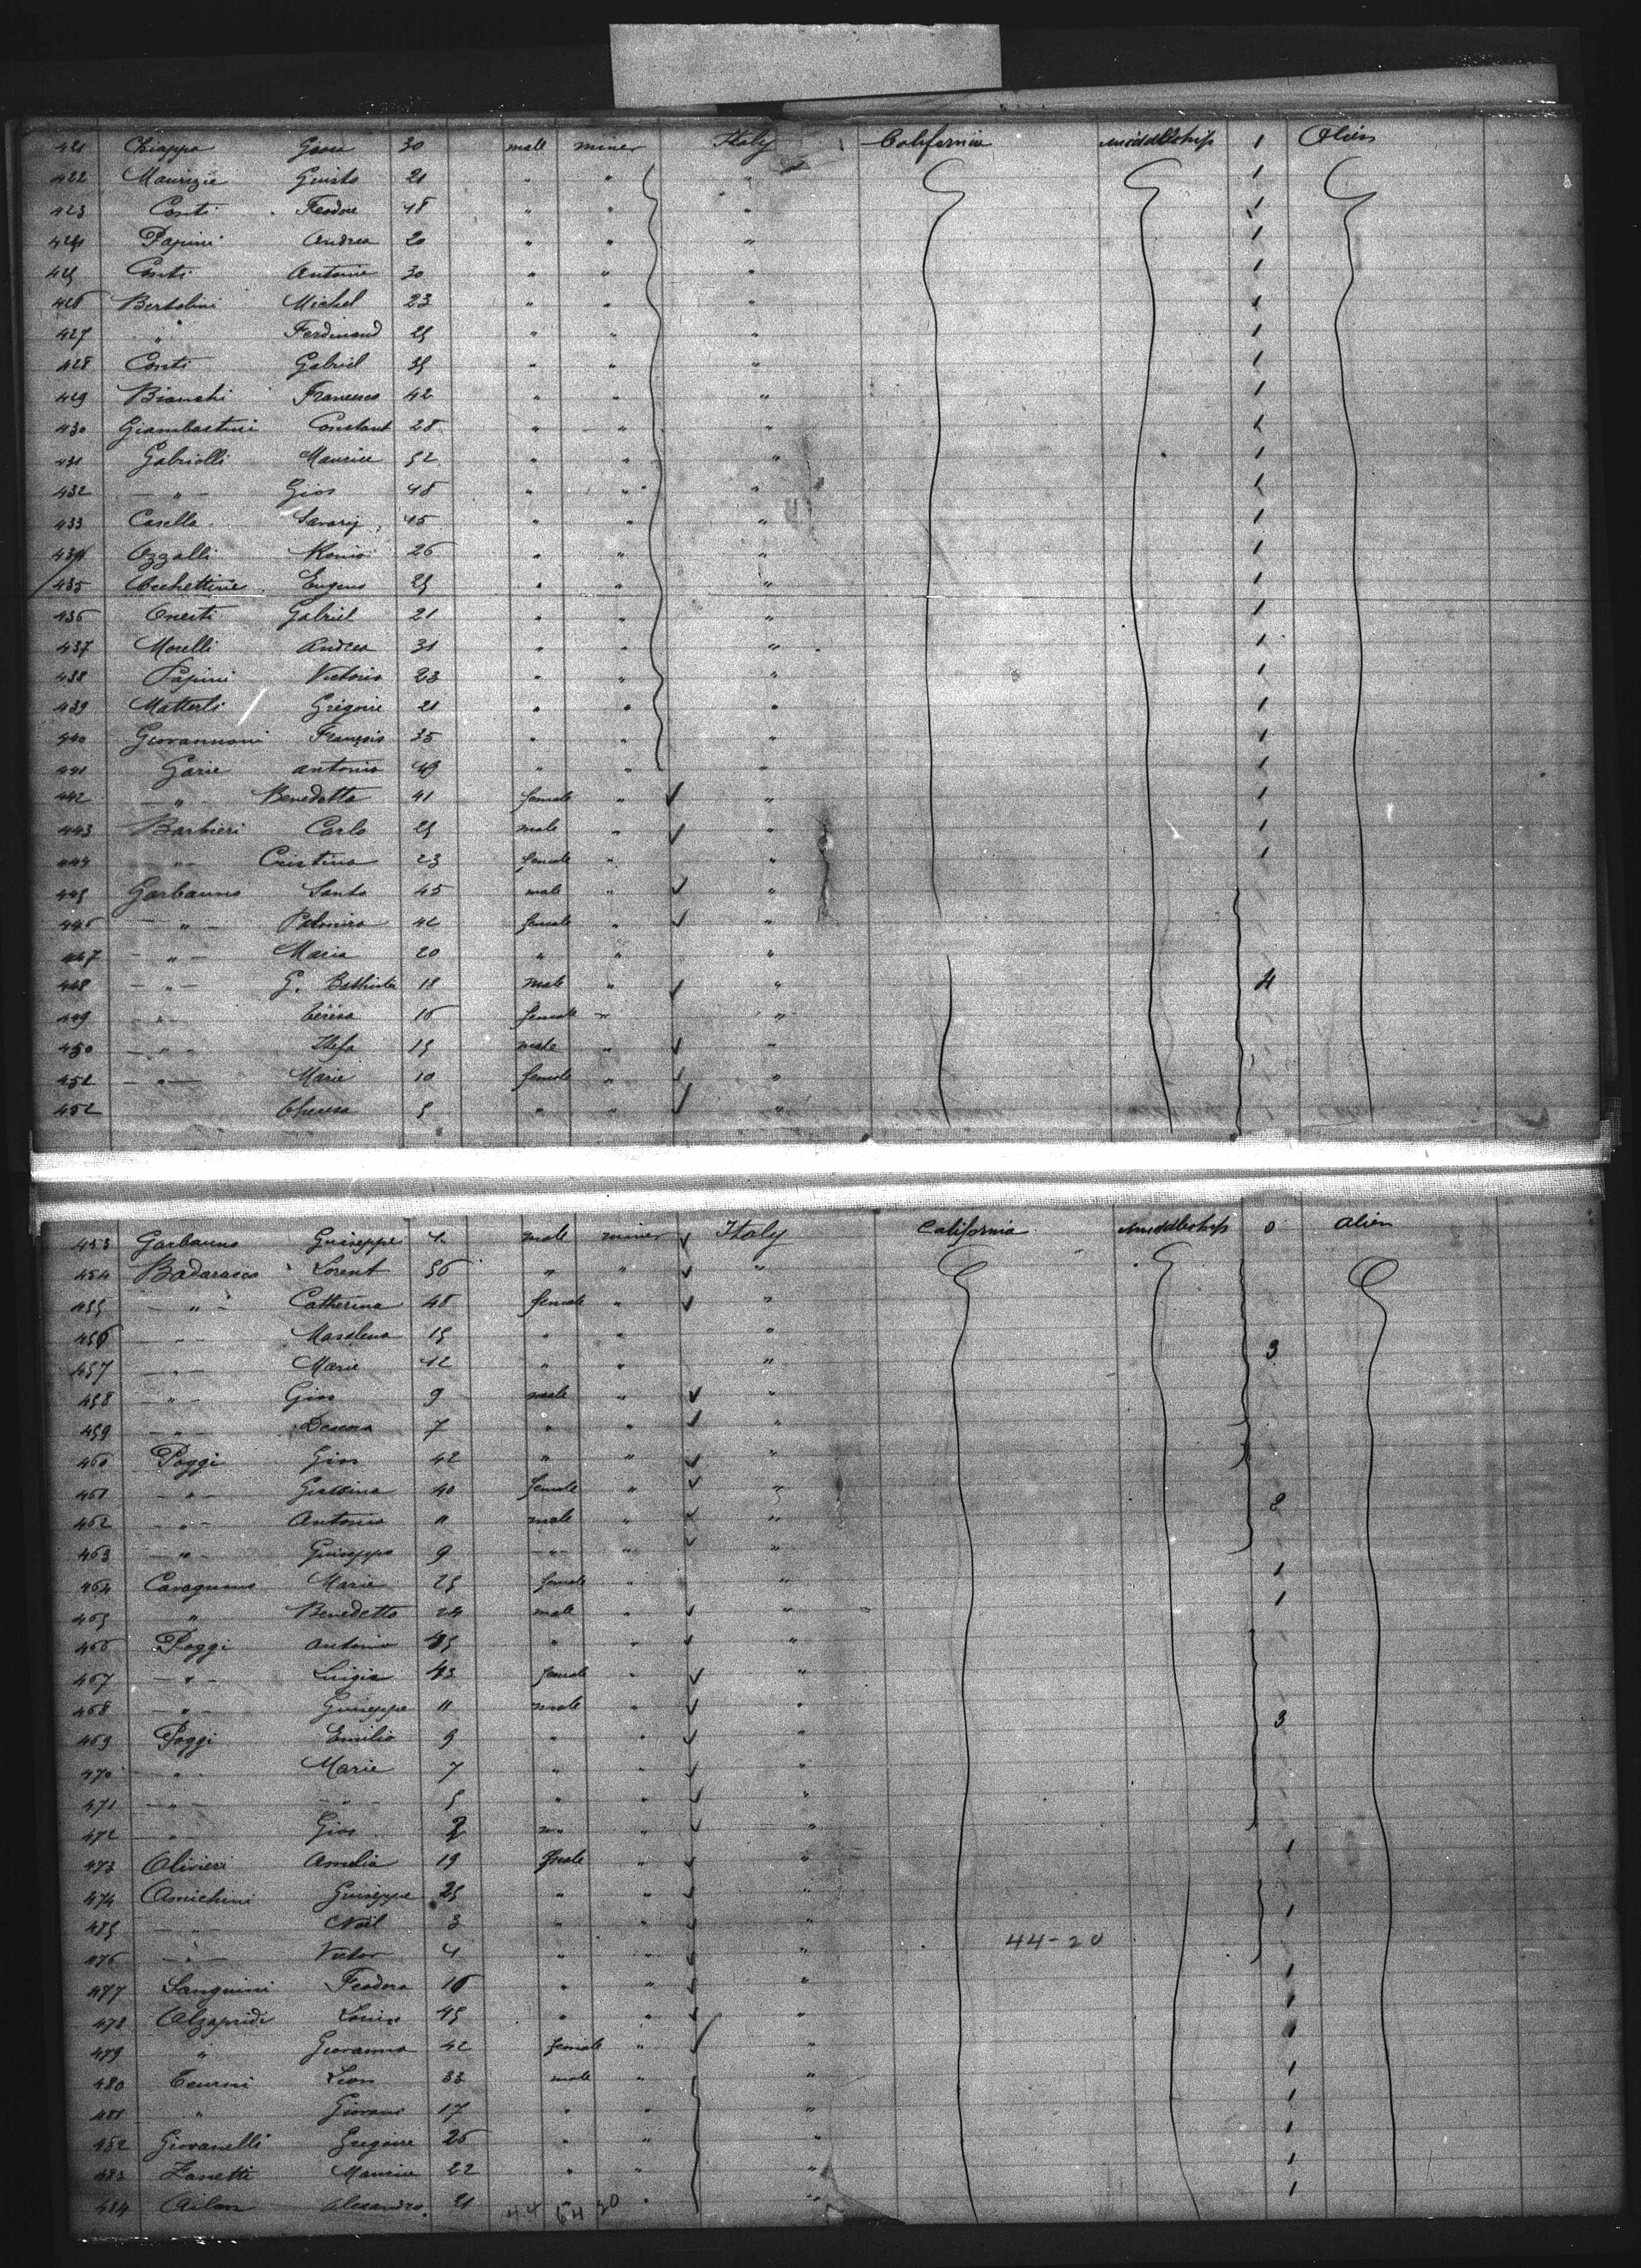 421 Chiappa 30 male miner Italy California Middleship 1 Alien
422 Maurizie Giusto 21 " " " 1
423 Conti Feodore 48 " " " 1
424 Papini Andrea 20 " " " 1
425 Conti Antoine 30 " " " 1
426 Bertolini Michel 23 " " " 1
427 " Ferdinand 25 " " " 1
428 Conti Gabriel 35 " " " 1
429 Bianchi Francesco 42 " " " 1
430 Giambastini Constant 28 " " " 1
431 Gabrielli Maurice 52 " " " 1
432 - " - Gios 48 " " " 1
433 Casella 45 " " " 1
434 Ozzalli 26 " " " 1
435 Occhettine Eugene 25 " " " 1
436 Onesti Gabriel 21 " " " 1
437 Morelli Andrea 31 " " " 1
438 Papini Victorio 23 " " " 1
439 Matterli Grégoire 21 " " " 1
440 Giovannoni François 35 " " " 1
441 Garie Antonio 49 " " " 1
442 - " - Benedetta 41 female " " 1
443 Barbieri Carlo 25 male " " 1
444 - " - Cristina 23 female " " 1
445 Garbauno Santo 45 male " "
446 - " - Palmira 42 female " "
447 - " - Maria 20 " " "
448 - " - G. Batthista 18 male " " 4
449 - " - Téresa 16 female " "
450 - " - 15 male " "
452 - " - Marie 10 female " "
452 5 " " "
453 Garbauno Guiseppe male miner Italy California Middleship 0 alien
454 Badarasco Lorent 56 " " "
455 - " - Catherina 48 female " "
456 - " - Madalena 15 " " "
457 - " - Marie 12 " " " 3
458 - " - Gios 9 male " "
459 - " - 7 " " "
460 Poggi Gios 42 " " "
461 - " - 40 female " "
462 - " - Antonio 11 male " " 2
463 - " - Guiseppe 9 - " - " "
464 Cavagnino Marie 25 female " " 1
465 " Benedetto 24 male " " 1
466 Poggi Antonio 45 " " "
467 - " - Luigia 43 female " "
468 - " - Guiseppe 11 male " " 3
469 Poggi Emilio 9 " " "
470 " Marie 7 " " "
471 - " - - " - 5 " " "
472 - " - Gios 2 " "
473 Olivieri Amelia 19 female " " 1
474 Amichini Guiseppe 25 " " "
475 - " - Noël 3 " " " 1
476 - " - Victor 4 " " " 44-20
477 Sanguini Feodora 16 " " " 1
478 Louis 45 " " " 1
479 " Giovanna 42 female " " 1
480 Leon 33 male " " 1
481 " Giovani 17 " " " 1
482 Giovanelli Gregoire 26 " " " 1
483 Zanetti Maurice 22 " " " 1
484 Alesandro 21 " " " 1